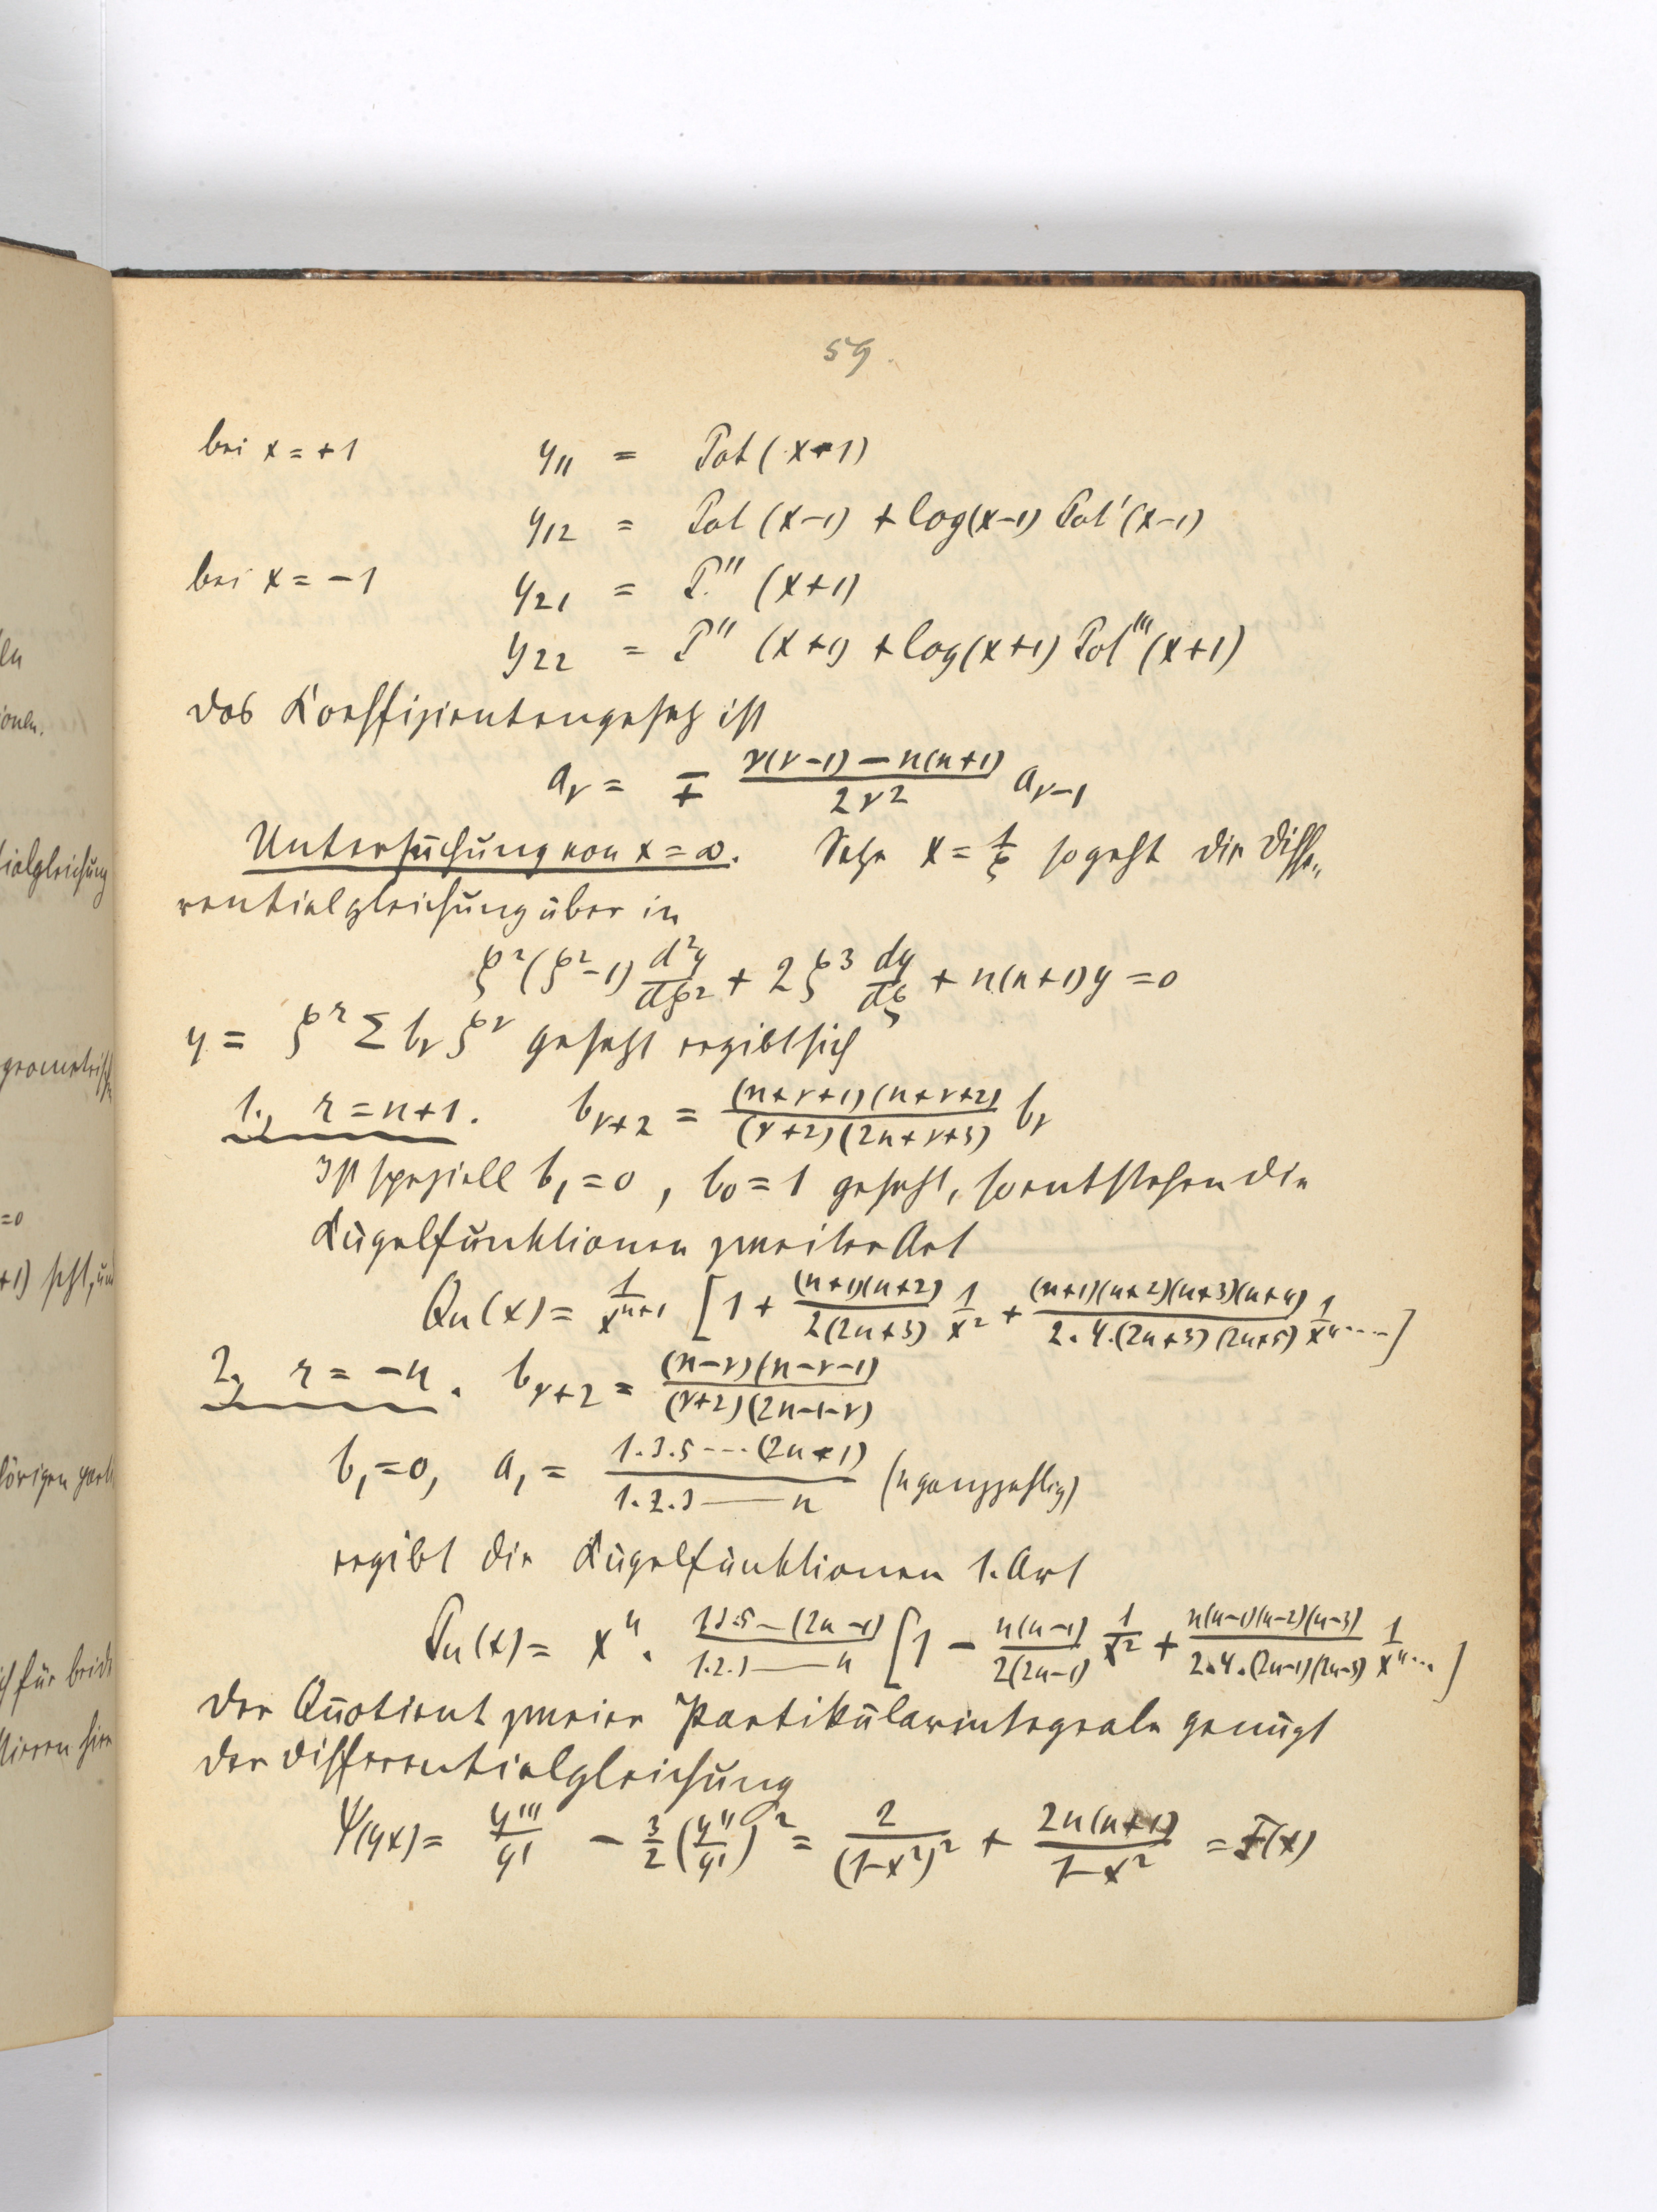 59.
bei x = +1 y₁₁ = Pot (x-1)
y₁₂ = Pot (x-1) + log(x-1) Pot' (x-1)
bei x = -1 y₂₁ = P." (x+1)
y₂₂ = P" (x+1) + log(x+1) Pot''' (x+1)
Das Koeffizientengesetz ist
a_ν = ∓ (ν(ν-1) - n(n+1))/(2ν²) a_ν-1
Untersuchung von x = ∞. Setze x = 1/ξ so geht die Diffe„
rentialgleichung über in
ξ²(ξ²-1) d²y/dξ² + 2ξ³ dy/dξ + n(n+1)y = 0
y = ξ^r Σ b_ν ξ^ν gesetzt ergibt sich
1., r = n+1. b_ν+2 = ((n+ν+1)(n+ν+2))/((ν+2)(2n+ν+3)) b_ν
Ist speziell b₁ = 0, b₀ = 1 gesetzt, so entstehen die
Kugelfunktionen zweiter Art
Qn(x) = 1/x^(n+1) [1 + ((n+1)(n+2))/(2(2n+3)) 1/x² + ((n+1)(n+2)(n+3)(n+4))/(2.4.(2n+3)(2n+5)) 1/x⁴ ....]
2., r = -n. b_ν+2 = ((n-ν)(n-ν-1))/((ν+2)(2n-1-ν))
b₁ = 0, a₁ = (1.3.5---(2n-1))/(1.2.3——n) (n ganzzahlig)
ergibt die Kugelfunktionen 1. Art
Pn(x) = xⁿ. (1.3.5—(2n-1))/(1.2.3——n) [1 - (n(n-1))/(2(2n-1)) 1/x² + (n(n-1)(n-2)(n-3))/(2.4.(2n-1)(2n-3)) 1/x⁴...]
Der Quotient zweier Partikularintegrale genügt
der Differentialgleichung
Ψ(yx) = y'''/y' - 3/2 (y''/y')² = 2/(1-x²)² + 2n(n+1)/(1-x²) = F(x)
ialgleichung
geometrisch
=0
+1) geht, und
hörigen parti
ch für beide